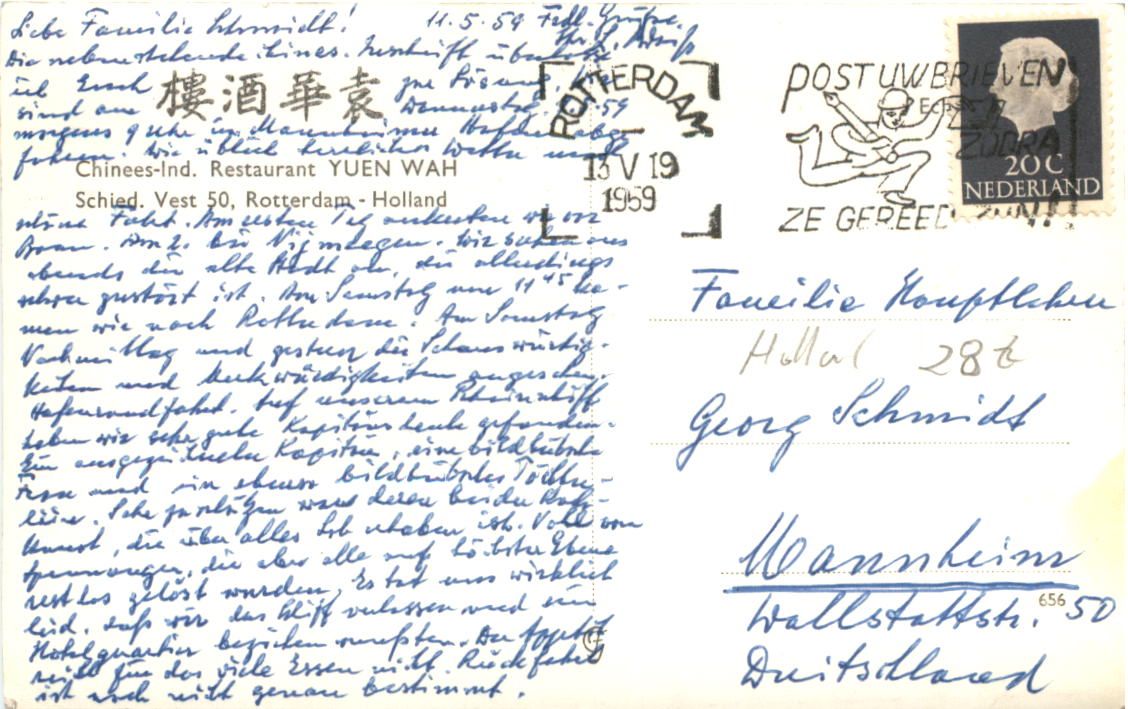 Liebe Familie Schmidt! 11.5.59 Frdl. Grüße
Die nebenstehende Chines. Inschrift
ich Euch zur Lösung.
樓酒華袁
sind am Donnerstag 59
morgens 9 Uhr im Mannheimer Hafen abge-
fahren. Wie üblich herrliches Wetter und
Chinees-Ind. Restaurant YUEN WAH
Schied. Vest 50, Rotterdam - Holland
schöne Fahrt. Am ersten Tag ankerten wir vor
Bonn. Am 2. bis Nijmwegen. Wir sahen uns
abends die alte Stadt an, die allerdings
schwer zerstört ist. Am Samstag um 11 45 ka-
men wir nach Rotterdam. Am Samstag
Nachmittag und gestern die Sehenswürdig-
keiten und Merkwürdigkeiten angesehen.
Hafenrundfahrt. Auf unserem Rheinschiff
haben wir sehr gute Kapitänsleute gefunden.
Ein ausgezeichneter Kapitän, eine bildhübsche
Frau und ein ebenso bildhübsches Töchter-
lein. Sehr zu schätzen war deren beider Koch-
kunst, die über alles Lob erhaben ist. Voll von
Spannungen, die aber alle auf höchster Ebene
restlos gelöst wurden. Es tat uns wirklich
leid, daß wir das Schiff verlassen und ein
Hotelquartier beziehen mußten. Der Appetit
reicht für das viele Essen nicht. Rückfahrt
ist noch nicht genau bestimmt.
ROTTERDAM
13 V 19
1959
POST UW BRIEVEN
ZODRA
ZE GEREED ZIJN!
20 C
NEDERLAND
Familie Hauptlehrer
Holland 28 t
Georg Schmidt
Mannheim
656
Wallstattstr. 50
Deutschland